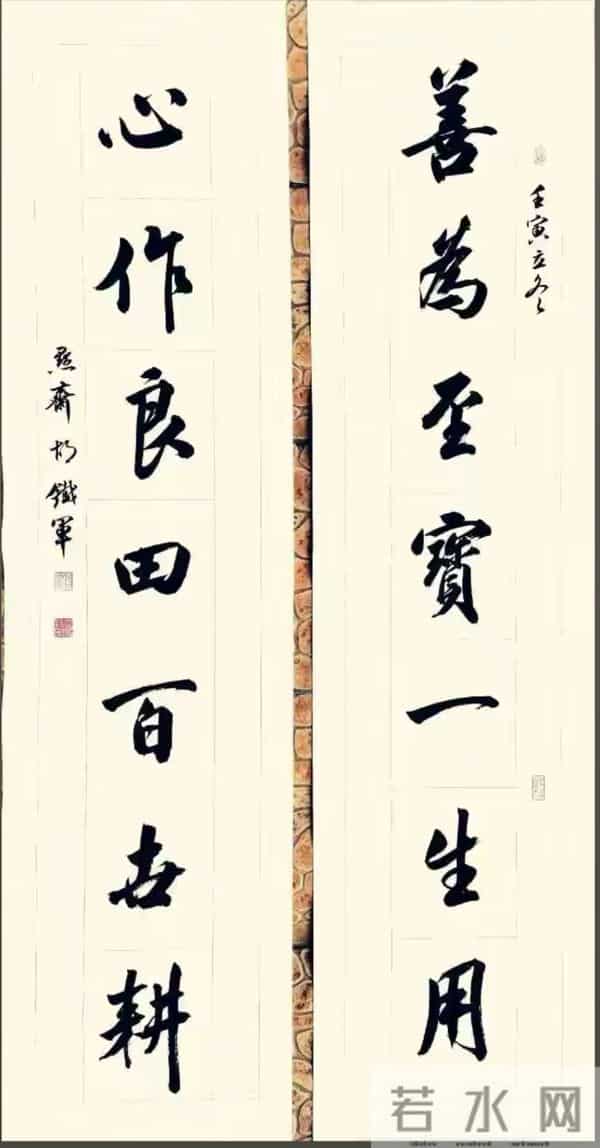 善為至寶一生用
壬寅立冬
心作良田百世耕
點齋胡鐵軍
若水网